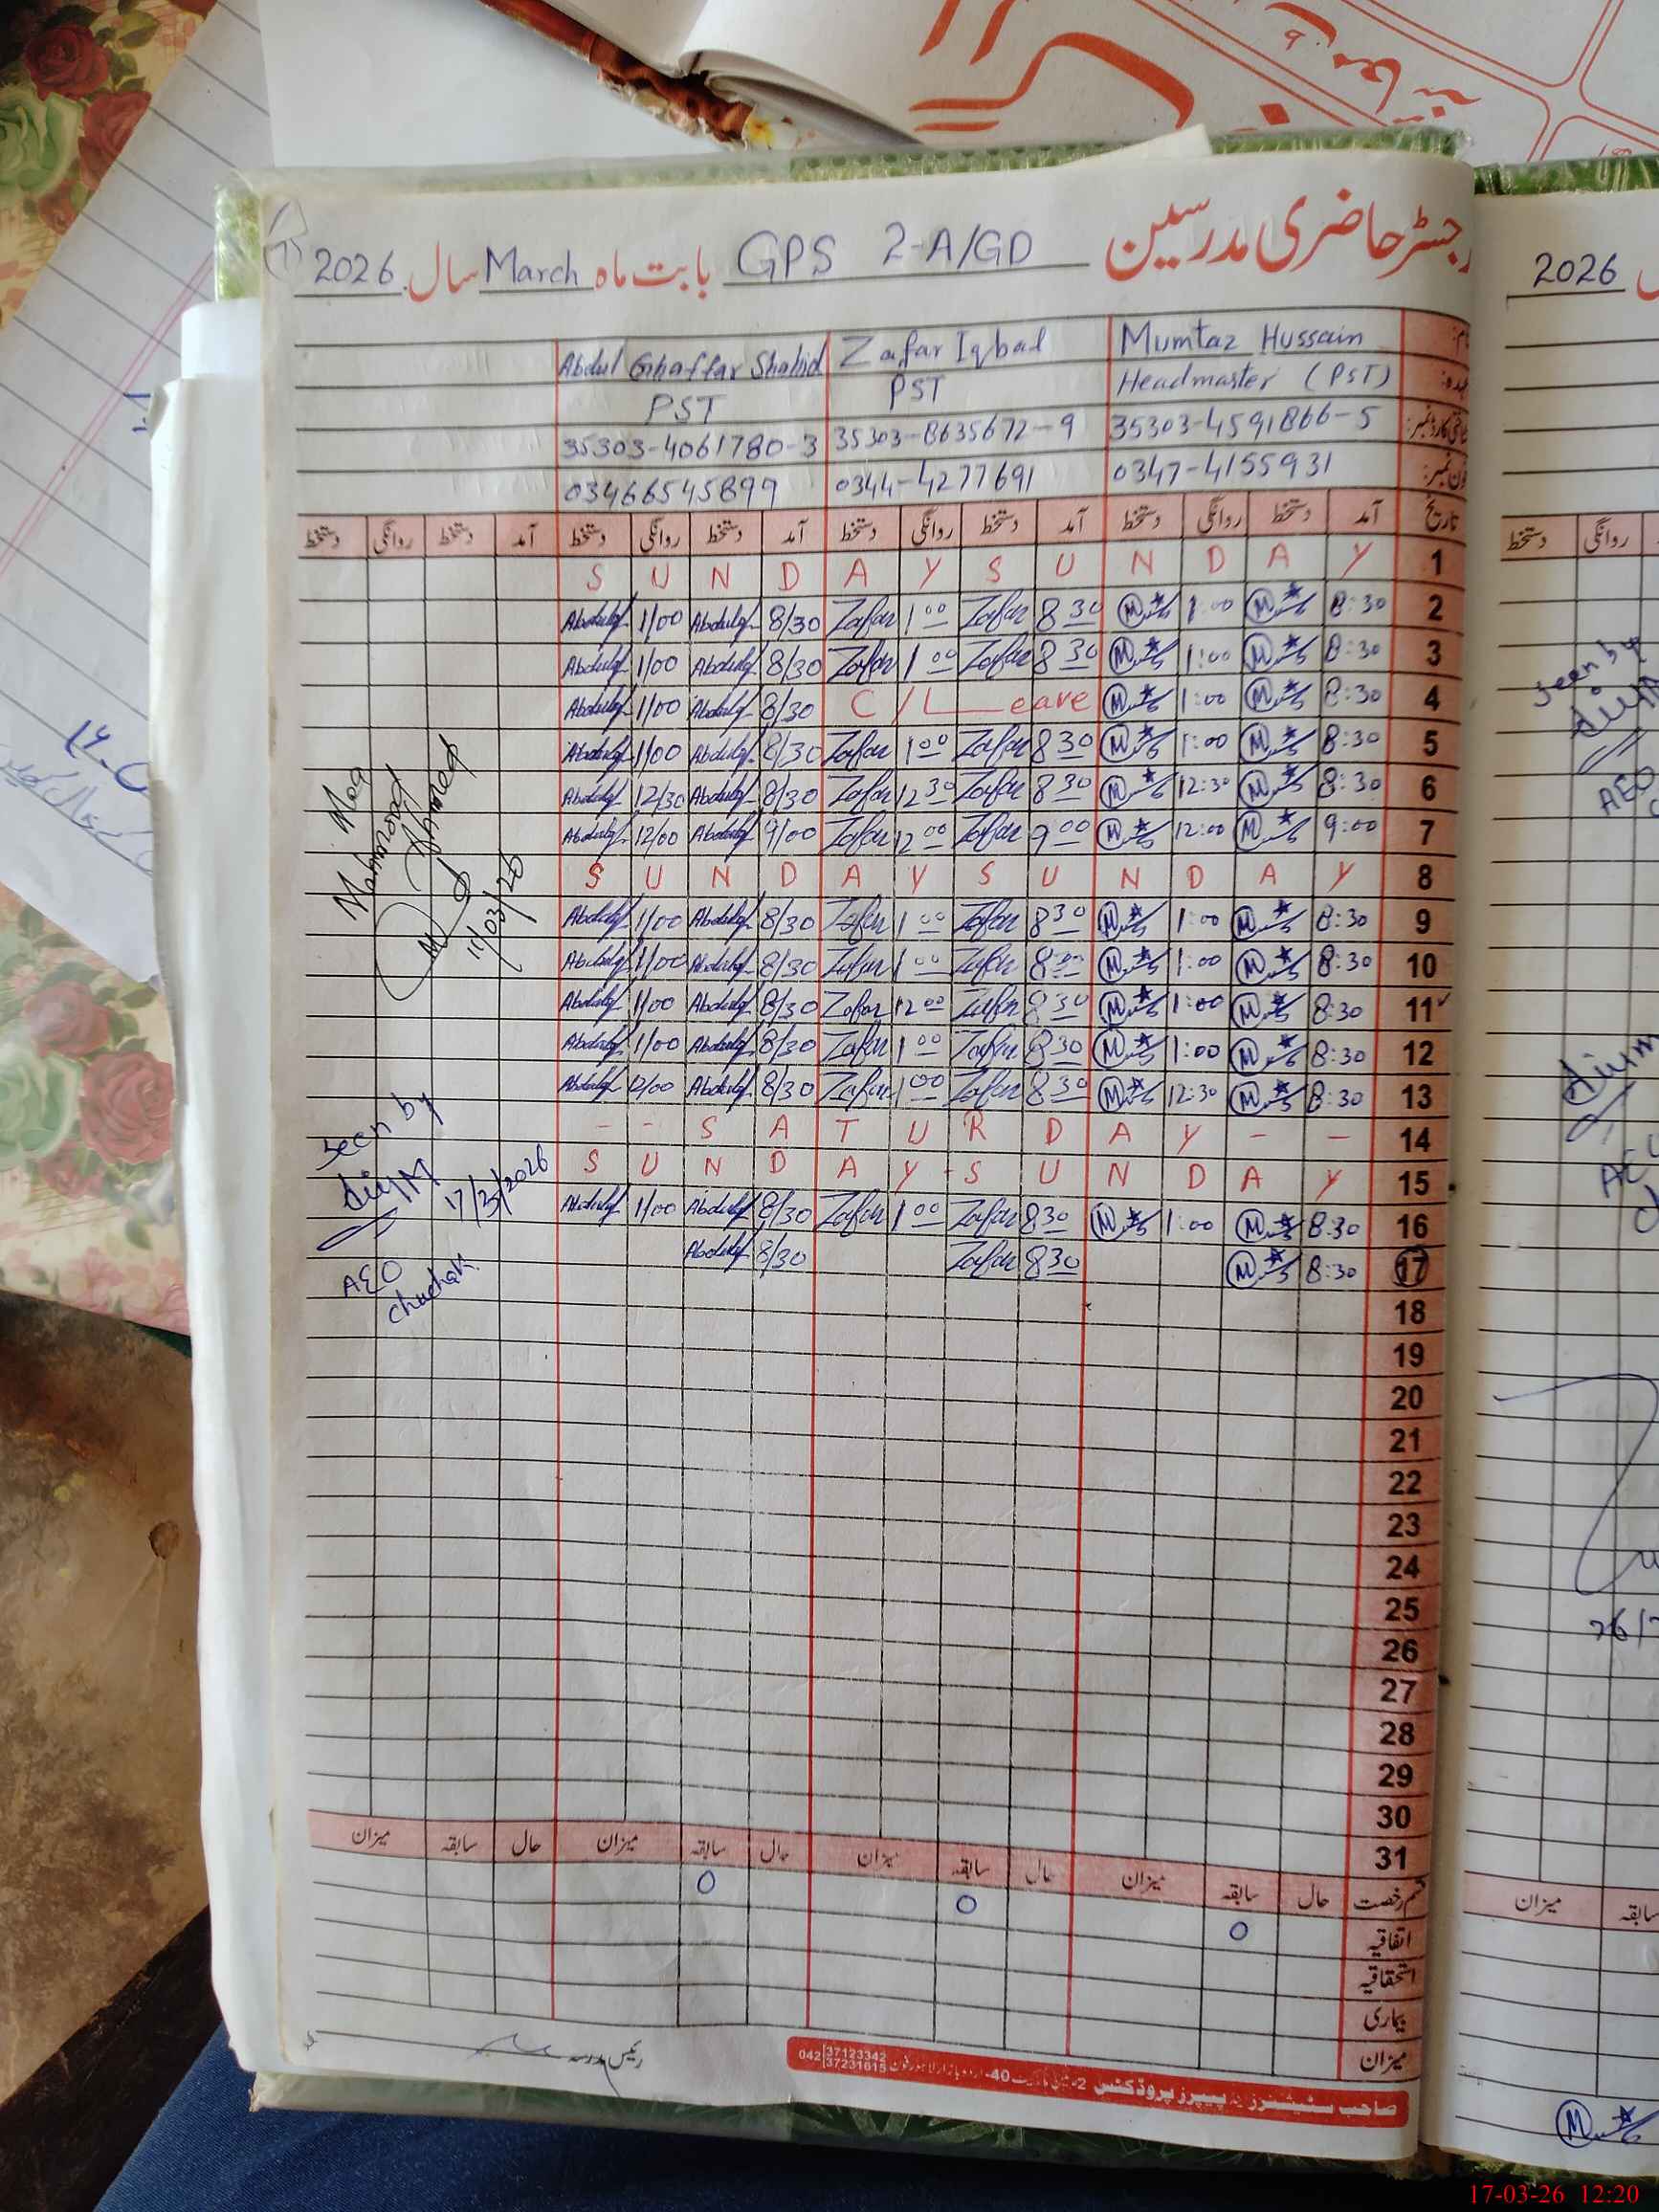 رجسٹر حاضری مدرسین GPS 2-A/GD بابت ماہ March سال 2026
Mumtaz Hussain Zafar Iqbal Abdul Ghaffar Shahid
Headmaster (PST) PST PST
35303-4591866-5 35303-8635672-9 35303-4061780-3
0347-4155931 0344-4277691 03466545899
تاریخ آمد دستخط روانگی دستخط آمد دستخط روانگی دستخط آمد دستخط روانگی دستخط آمد دستخط روانگی دستخط
S U N D A Y S U N D A Y 1
Abdulgf 1/00 Abdulgf 8/30 Zafar 1 00 Zafar 8 30 M 1:00 M 8:30 2
Abdulgf 1/00 Abdulgf 8/30 Zafar 1 00 Zafar 8 30 M 1:00 M 8:30 3
Abdulgf 1/00 Abdulgf 8/30 C/Leave M 1:00 M 8:30 4
Abdulgf 1/00 Abdulgf 8/30 Zafar 1 00 Zafar 8 30 M 1:00 M 8:30 5
Abdulgf 12/30 Abdulgf 8/30 Zafar 12 30 Zafar 8 30 M 12:30 M 8:30 6
Abdulgf 12/00 Abdulgf 9/00 Zafar 12 00 Zafar 9 00 M 12:00 M 9:00 7
S U N D A Y S U N D A Y 8
Abdulgf 1/00 Abdulgf 8/30 Zafar 1 00 Zafar 8 30 M 1:00 M 8:30 9
Abdulgf 1/00 Abdulgf 8/30 Zafar 1 00 Zafar M 1:00 M 8:30 10
Abdulgf 1/00 Abdulgf 8/30 Zafar 12 00 Zafar 8 30 M 1:00 M 8:30 11
Abdulgf 1/00 Abdulgf 8/30 Zafar 1 00 Zafar 8 30 M 1:00 M 8:30 12
Abdulgf Abdulgf 8/30 Zafar 1 00 Zafar 8 30 M 12:30 M 8:30 13
- - S A T U R D A Y - - 14
S U N D A Y - S U N D A Y 15
Abdulgf 1/00 Abdulgf 8/30 Zafar 1 00 Zafar 8 30 M 1:00 M 8:30 16
Abdulgf 8/30 Zafar 8 30 M 8:30 17
18
19
20
21
22
23
24
25
26
27
28
29
30
31
Mahmood Ahmed
11/03/26
Seen by
17/3/2026
AEO
chuchak
قسم رخصت حال سابقہ میزان حال سابقہ میزان حال سابقہ میزان حال سابقہ میزان
اتفاقیہ 0 0 0
استحقاقیہ
بیماری
میزان
رئیس مدرسہ
صاحب سٹیشنرز پیپرز پروڈکٹس
042 37123342
37231615
2026
Seen by
AEO
دستخط روانگی
میزان سابقہ
17-03-26 12:20